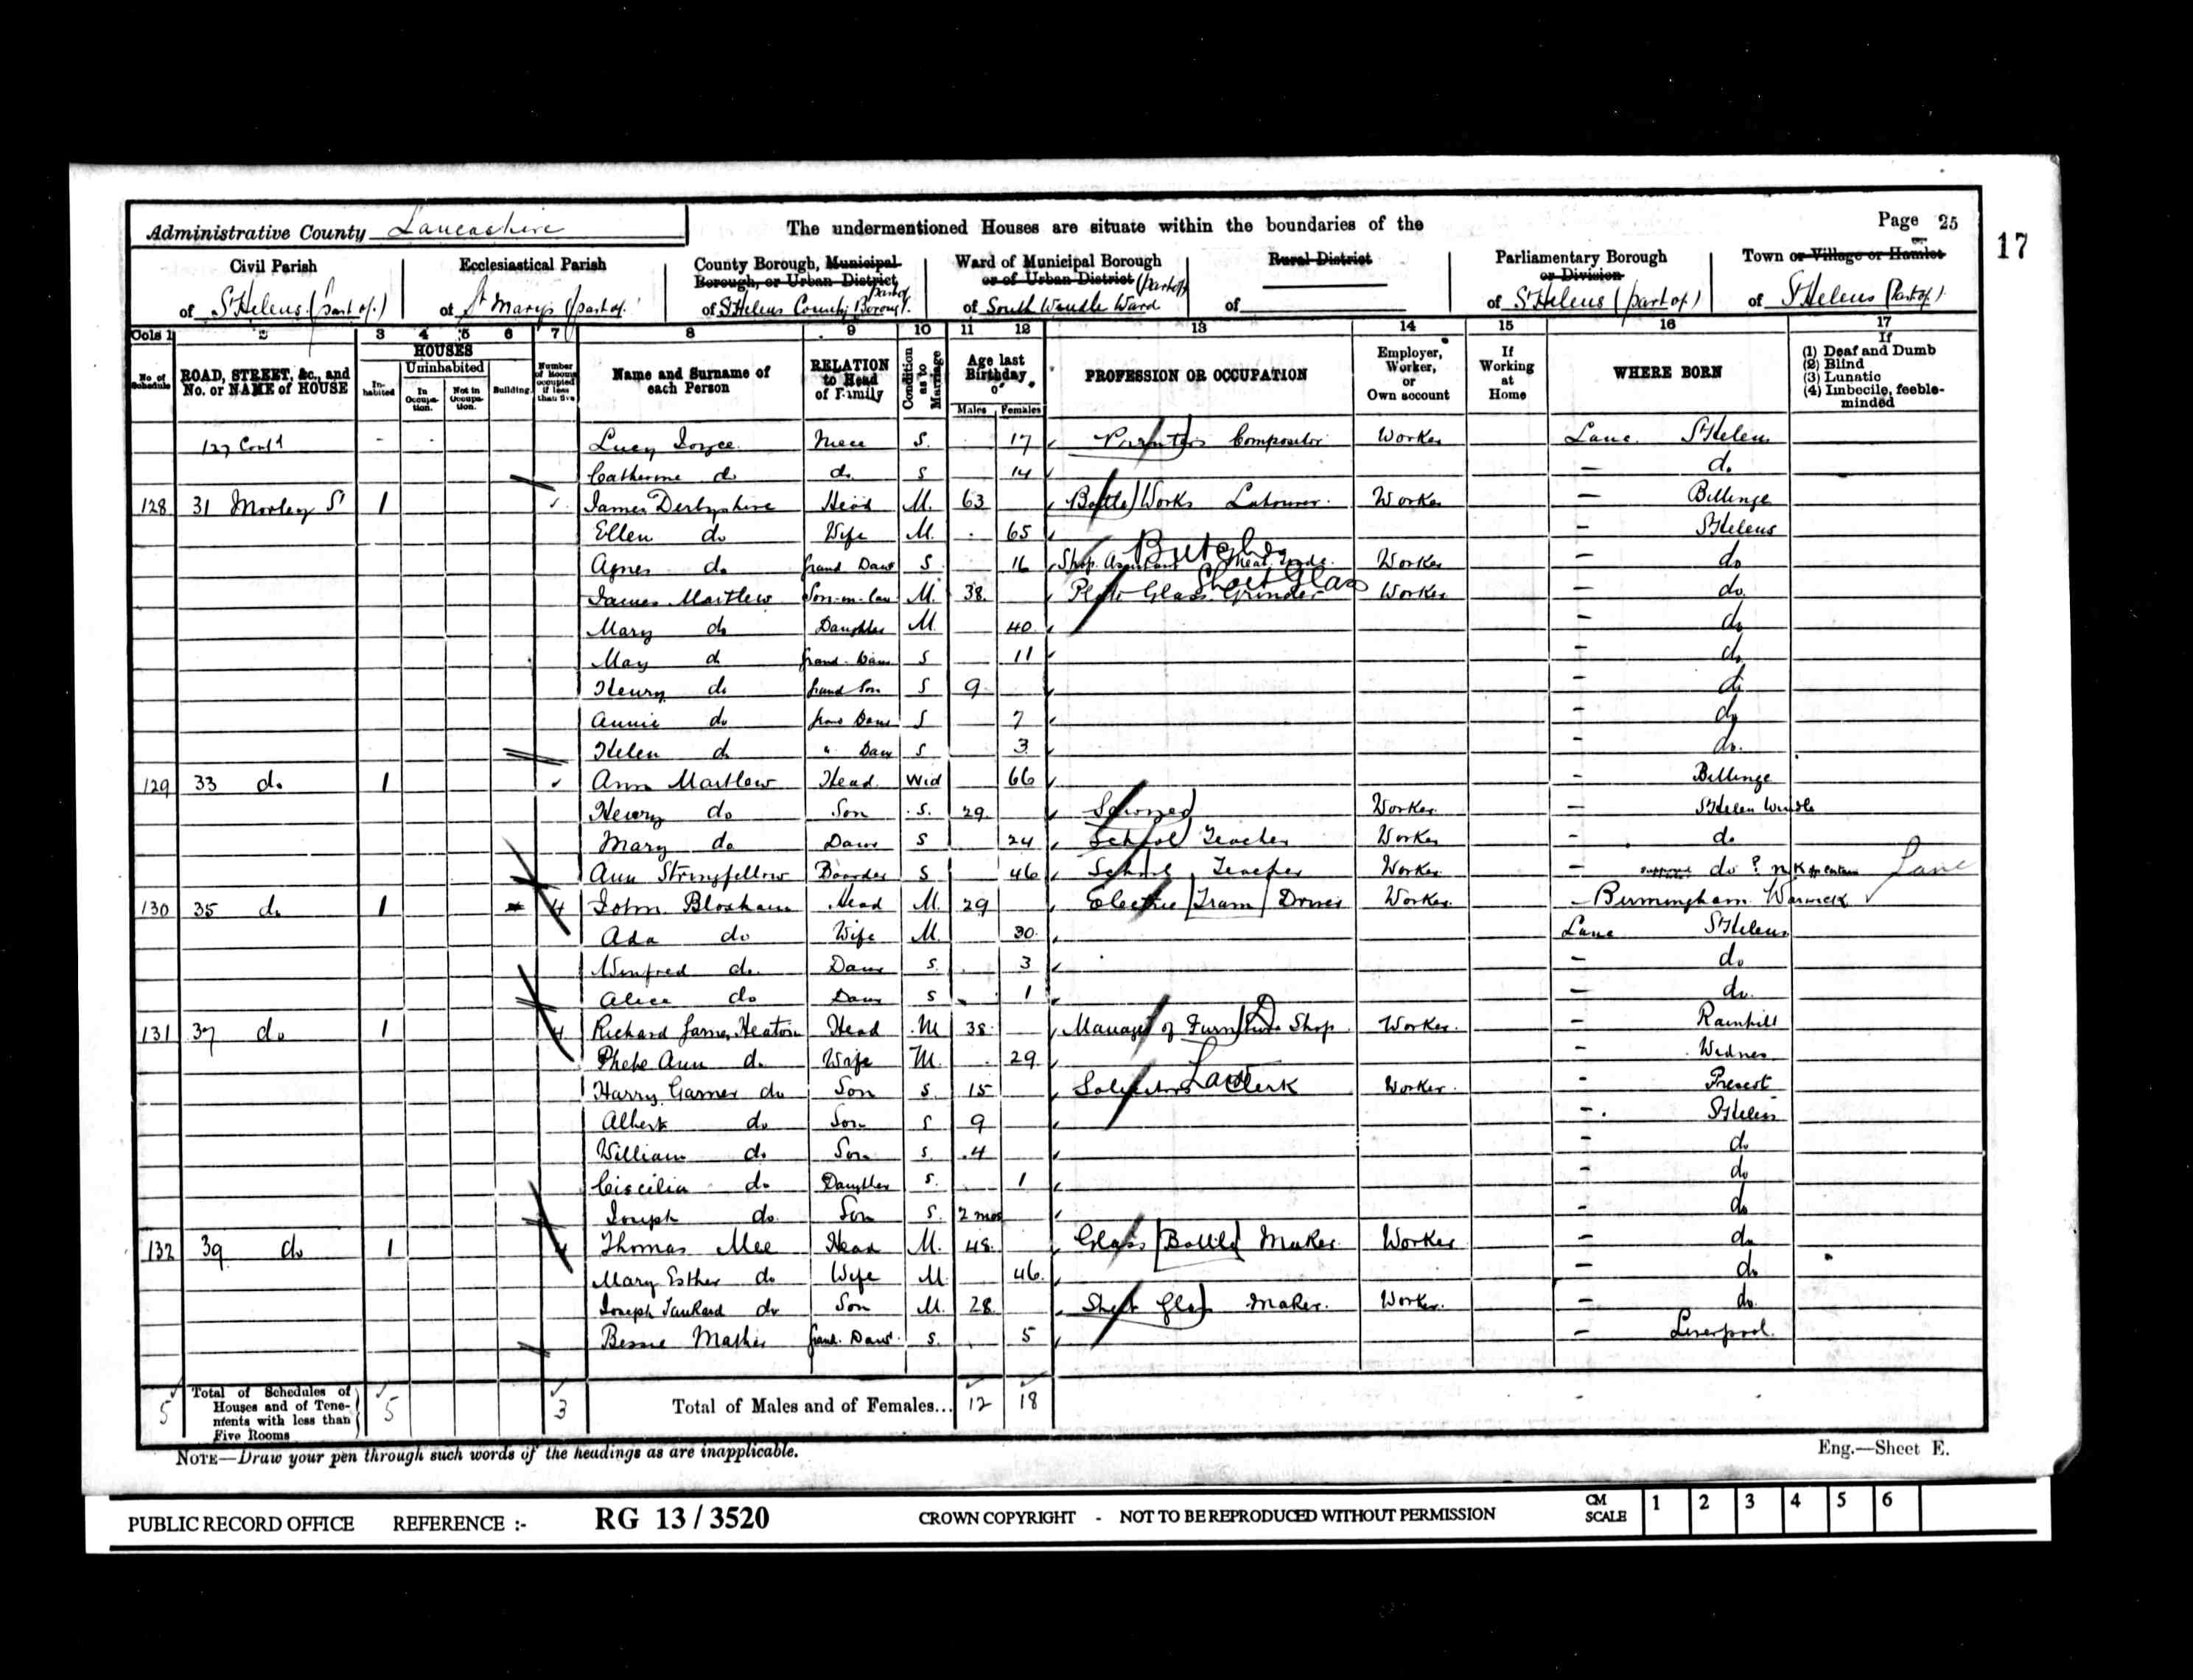 Administrative County Lancashire The undermentioned Houses are situate within the boundaries of the Page 25
17
Civil Parish Ecclesiastical Parish County Borough, Municipal Borough, or Urban District Ward of Municipal Borough or of Urban District (part of) Rural District Parliamentary Borough or Division Town or Village or Hamlet
of St Helens (part of) of St Marys (part of) of St Helens County Boro' part of of South Windle Ward of of St Helens (part of) of St Helens (Part of)
Cols 1 2 3 4 5 6 7 8 9 10 11 12 13 14 15 16 17
No of Schedule ROAD, STREET, &c., and No. or NAME of HOUSE HOUSES Inhabited Uninhabited In Occupation. Not in Occupation. Building. Number of Rooms occupied if less than five Name and Surname of each Person RELATION to Head of Family Condition as to Marriage Age last Birthday of Males Females PROFESSION OR OCCUPATION Employer, Worker, or Own account If Working at Home WHERE BORN If (1) Deaf and Dumb (2) Blind (3) Lunatic (4) Imbecile, feeble-minded
127 Contd Lucy Joyce Niece S. 17 Printers Compositor Worker Lanc St Helens
Catherine do do S 14 do
128 31 Morley St 1 James Derbyshire Head M. 63 Bottle Works Labourer Worker Billinge
Ellen do Wife M. 65 St Helens
Agnes do Grand Daur S 16 Shop Assistant Meat Trade Butcher Worker do
James Martlew Son-in-law M. 38 Plate Glass Grinder Sheet Glass Worker do
Mary do Daughter M 40 do
May do Grand-Daur S 11 do
Henry do Grand Son S 9 do
Annie do Grand Daur S 7 do
Helen do " Daur S 3 do.
129 33 do 1 Ann Martlew Head Wid 66 Billinge
Henry do Son S. 29 Worker St Helen Windle
Mary do Daur S 24 School Teacher Worker do
Ann Stringfellow Boarder S 46 School Teacher Worker do ? Lanc
130 35 do 1 4 John Bloxham Head M. 29 Electric Tram Driver Worker Birmingham Warwick
Ada do Wife M. 30 Lanc St Helens
Winifred do Daur S. 3 do
Alice do Daur S 1 do.
131 37 do 1 4 Richard James Heaton Head M 38 Manager of Furniture Shop D Worker Rainhill
Phebe Ann do Wife M. 29 Widnes
Harry Garner do Son S. 15 Solicitors Clerk Law Worker Prescot
Albert do Son S 9 St Helens
William do Son S. 4 do
Ciscilia do Daughter S. 1 do
Joseph do Son S. 2 mos do
132 39 do 1 4 Thomas Mee Head M. 48 Glass Bottle Maker Worker do
Mary Esther do Wife M 46 do
Joseph Tankard do Son M. 28 Sheet Glass Maker Worker do
Bessie Mather Grand. Daur S. 5 Liverpool
5 Total of Schedules of Houses and of Tenements with less than Five Rooms 5 3 Total of Males and of Females... 12 18
NOTE—Draw your pen through such words of the headings as are inapplicable. Eng.—Sheet E.
PUBLIC RECORD OFFICE REFERENCE :- RG 13 / 3520 CROWN COPYRIGHT - NOT TO BE REPRODUCED WITHOUT PERMISSION CM SCALE 1 2 3 4 5 6